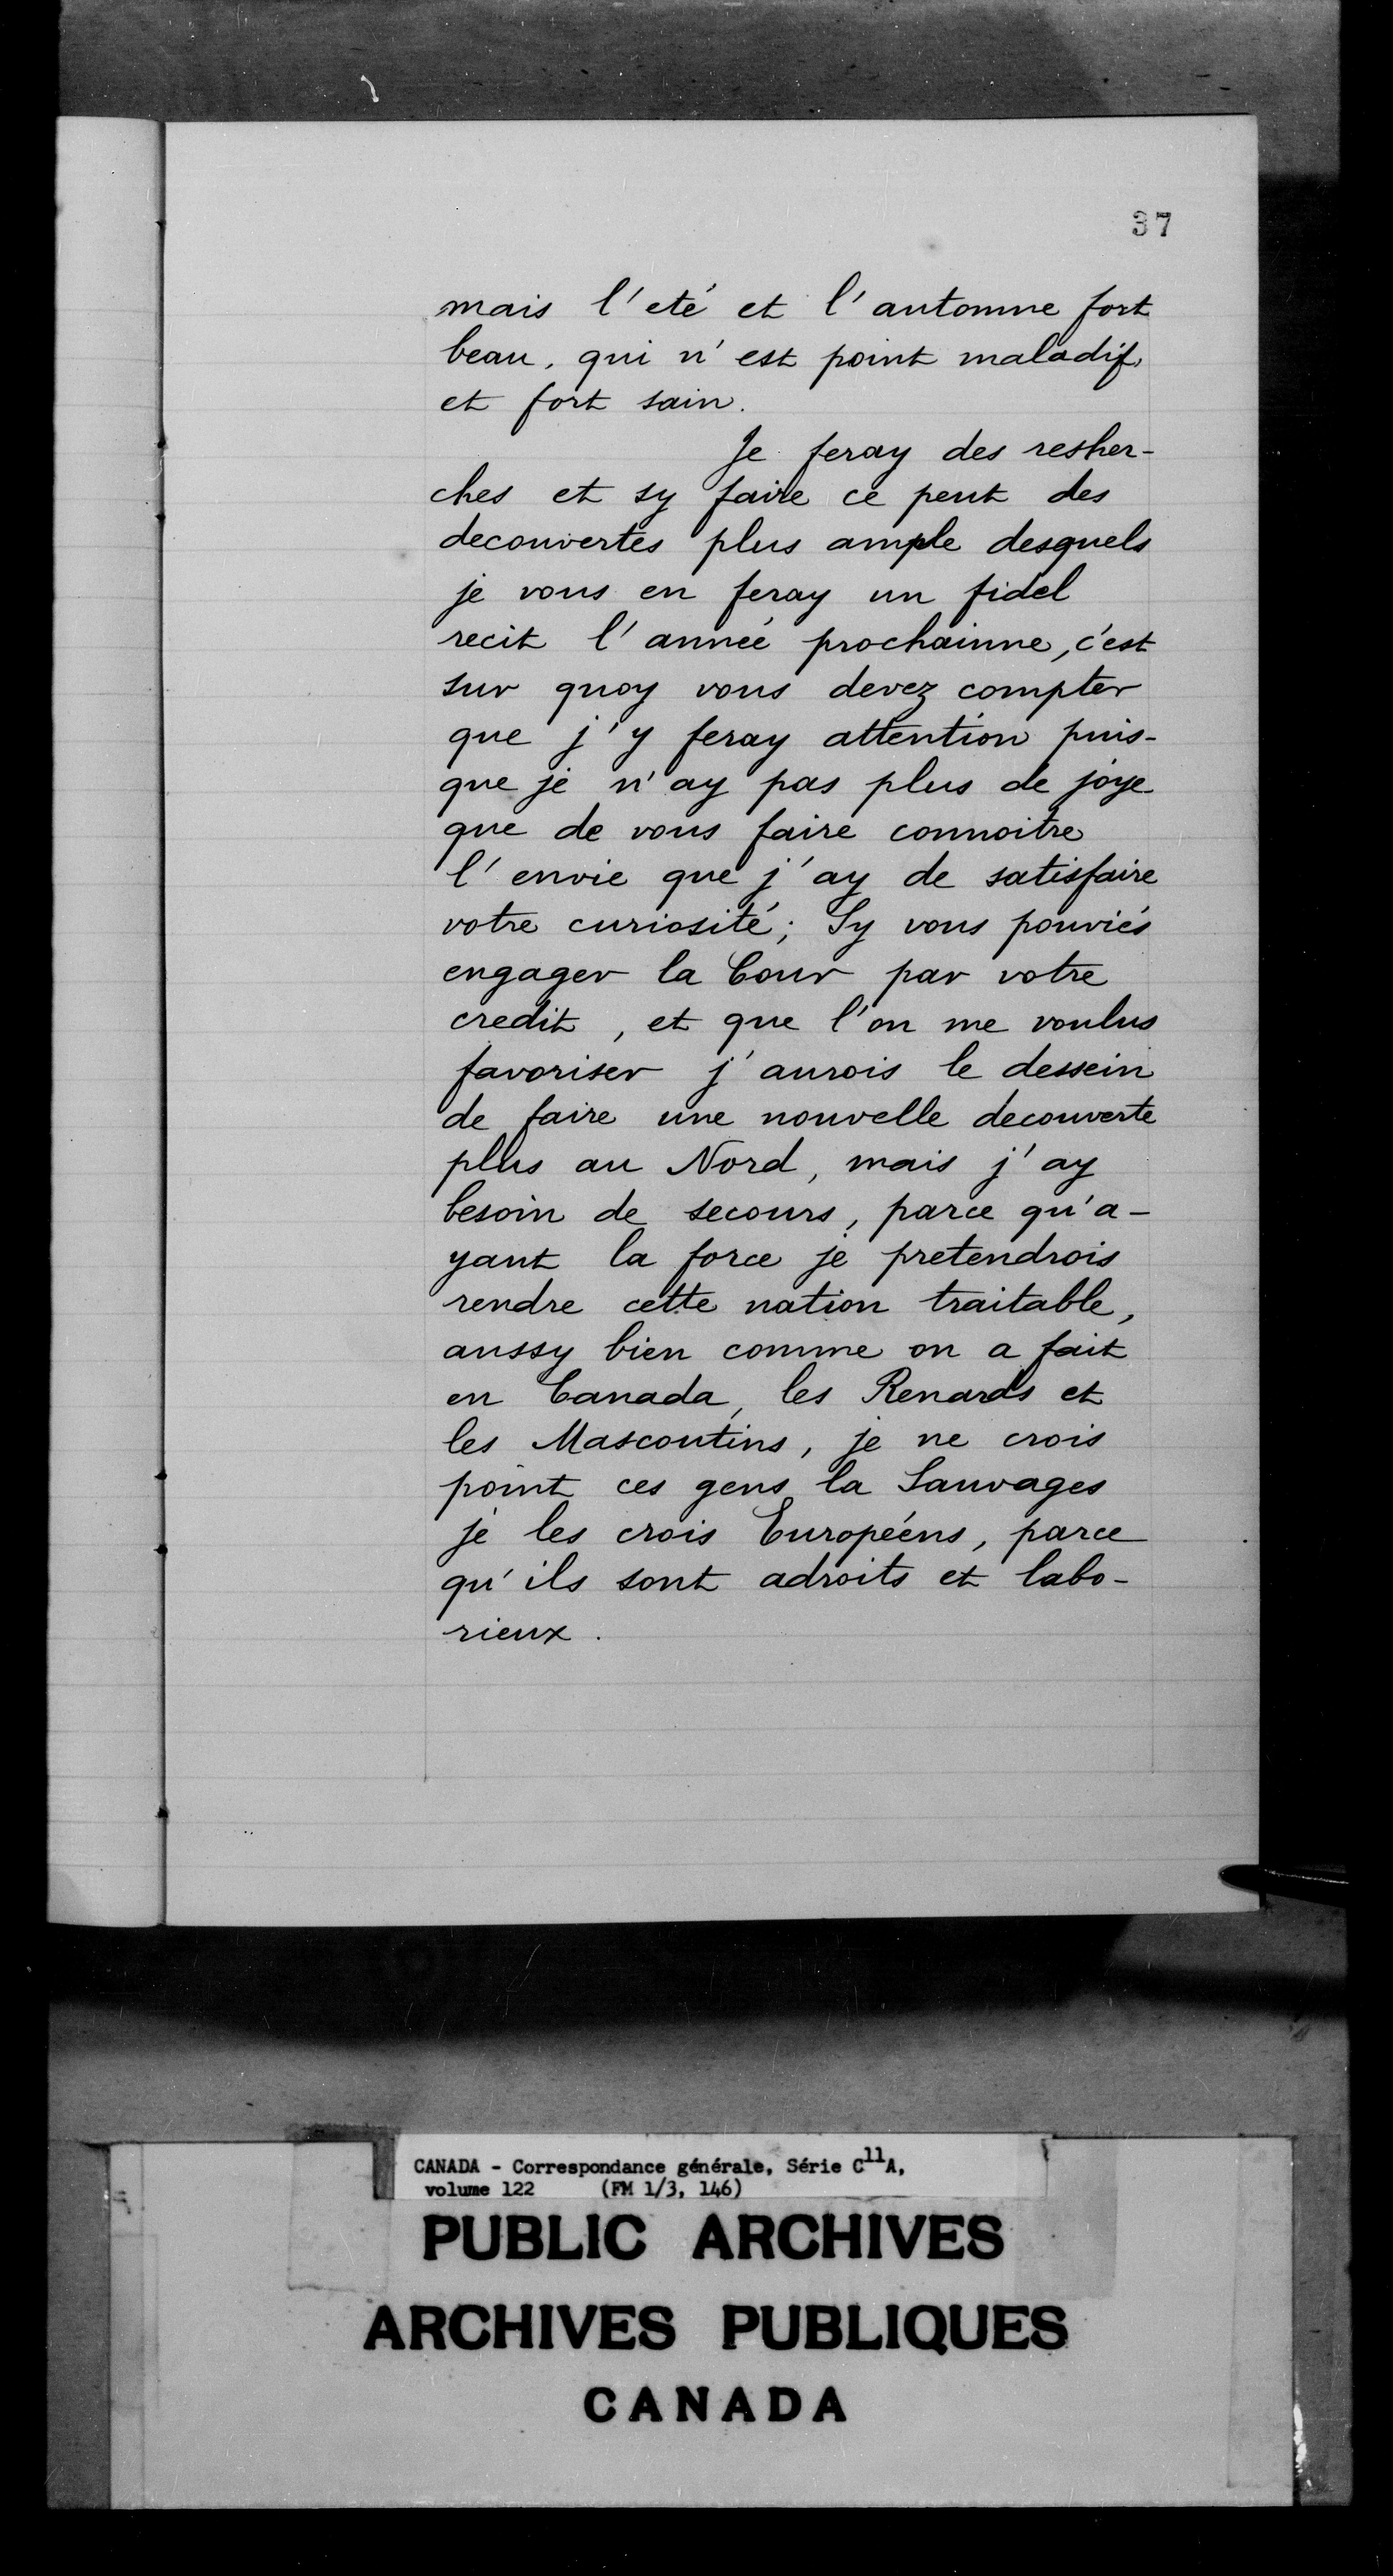 37
mais l'eté et l'automne fort
beau, qui n'est point maladif,
et fort sain.
Je feray des resher-
ches et sy faire ce peut des
decouvertes plus ample desquels
je vous en feray un fidel
recit l'année prochainne, c'est
sur quoy vous devez compter
que j'y feray attention puis-
que je n'ay pas plus de joye
que de vous faire connoitre
l'envie que j'ay de satisfaire
votre curiosité; Sy vous pouviés
engager la Cour par votre
credit, et que l'on me voulus
favoriser j'aurois le dessein
de faire une nouvelle decouverte
plus au Nord, mais j'ay
besoin de secours, parce qu'a-
yant la force je pretendrois
rendre cette nation traitable,
aussy bien comme on a fait
en Canada, les Renards et
les Mascoutins, je ne crois
point ces gens la Sauvages
je les crois Européens, parce
qu'ils sont adroits et labo-
rieux.
CANADA - Correspondance générale, Série C11A,
volume 122 (FM 1/3, 146)
PUBLIC ARCHIVES
ARCHIVES PUBLIQUES
CANADA